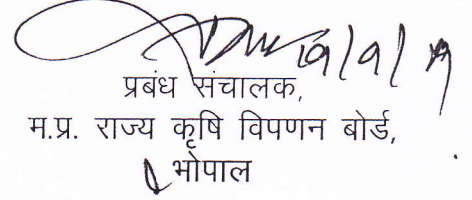 प्रबंध संचालक,
म.प्र. राज्य कृषि विपणन बोर्ड,
भोपाल